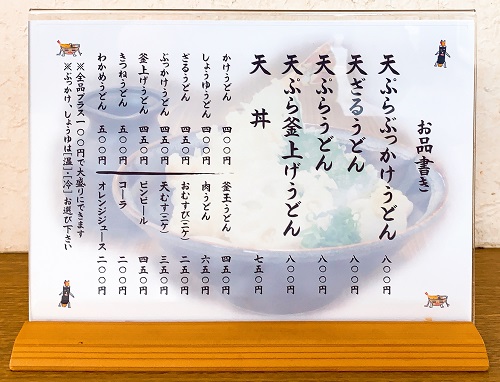 お品書き
天ぷらぶっかけうどん 八〇〇円
天ざるうどん 八〇〇円
天ぷらうどん 八〇〇円
天ぷら釜上げうどん 八〇〇円
天丼 七五〇円
かけうどん 四〇〇円
しょうゆうどん 四〇〇円
ざるうどん 四五〇円
ぶっかけうどん 四五〇円
釜上げうどん 四五〇円
きつねうどん 五〇〇円
わかめうどん 五〇〇円
釜玉うどん 四五〇円
肉うどん 六五〇円
おむすび(二ケ) 二五〇円
天むす(二ケ) 三五〇円
ビンビール 四五〇円
コーラ 二〇〇円
オレンジジュース 二〇〇円
※全品プラス一〇〇円で大盛りにできます
※ぶっかけ、しょうゆは「温」・「冷」お選び下さい